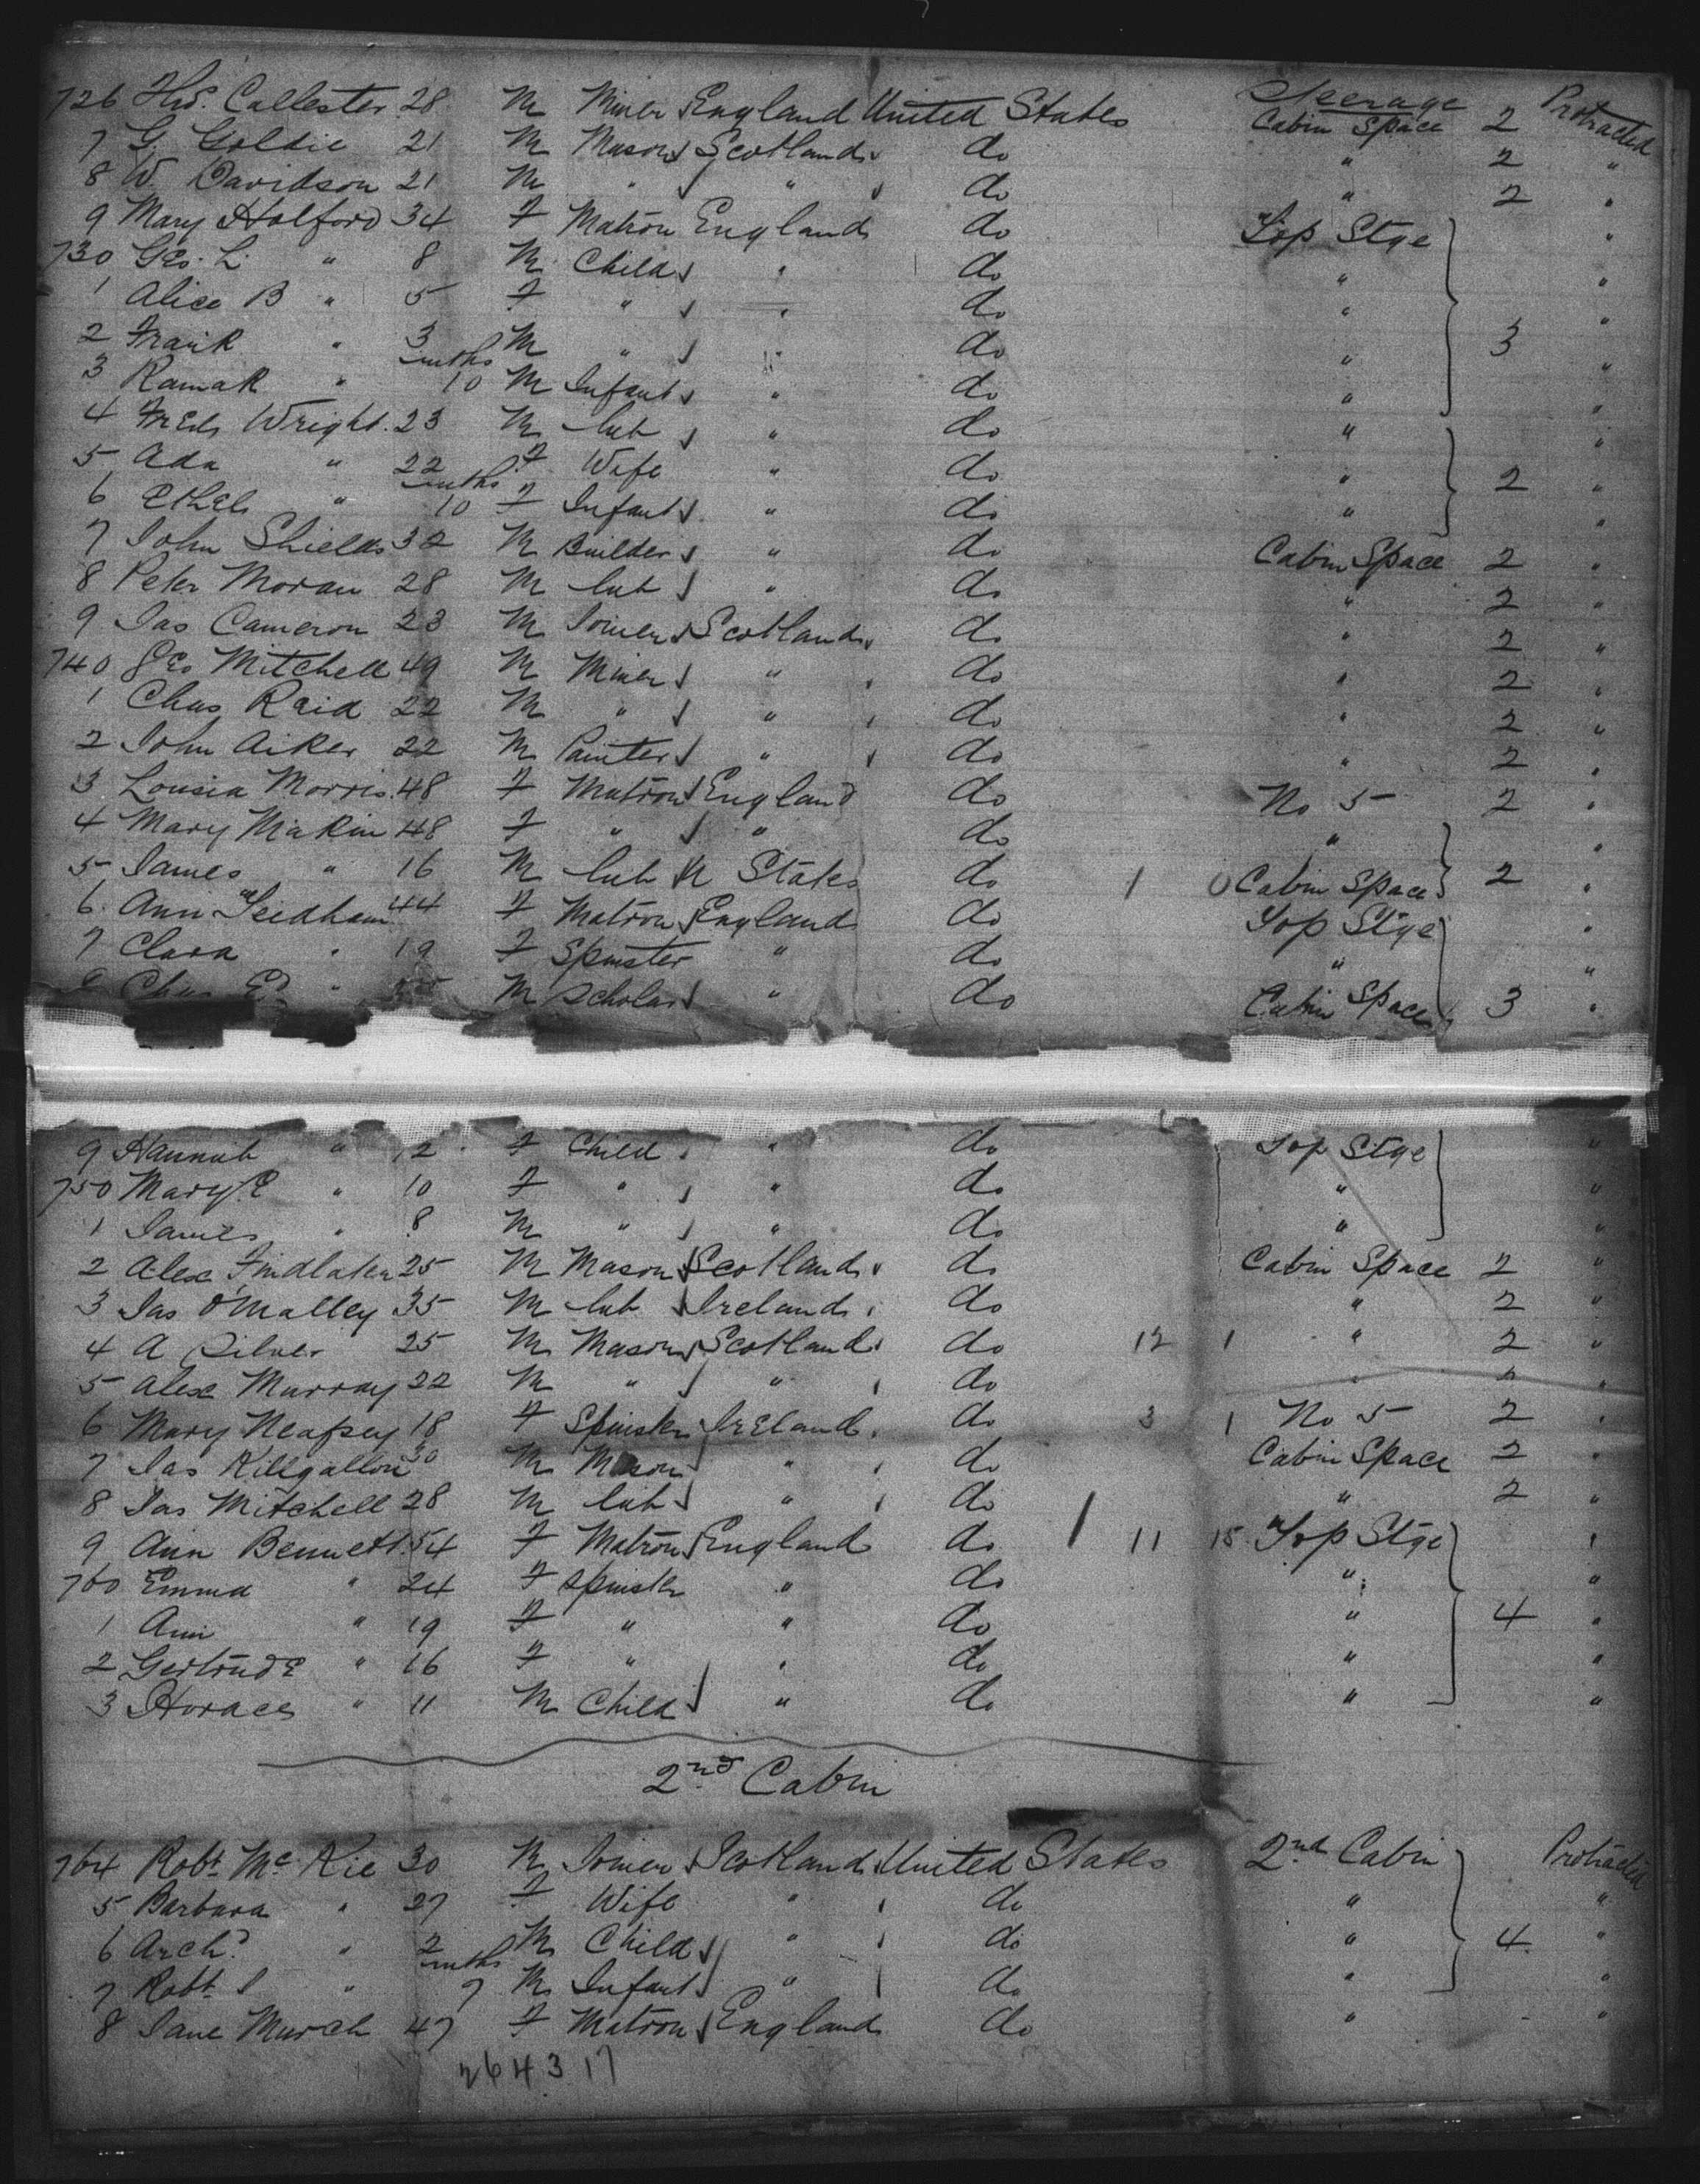 Steerage
726 Thos. Callester 28 M Miner England United States Cabin Space 2 Protracted
7 G. Goldie 21 M Mason Scotland do " 2 "
8 W. Davidson 21 M " " do " 2 "
9 Mary Holford 34 F Matron England do Top Stge "
730 Geo. L. " 8 M Child " do " "
1 Alice B " 5 F " " do " "
2 Frank " 3 M " " do " 3 "
3 " mnths 10 M Infant " do " "
4 Fred Wright 23 M Lab " do " "
5 Ada " 22 F Wife " do " 2 "
6 Ethel " mnths 10 F Infant " do " "
7 John Shields 32 M Builder " do Cabin Space 2 "
8 Peter Moran 28 M Lab " do " 2 "
9 Jas Cameron 23 M Joiner Scotland do " 2 "
740 Geo Mitchell 49 M Miner " do " 2 "
1 Chas Reid 22 M " " do " 2 "
2 John Aiker 22 M Painter " do " 2 "
3 Lousia Morris 48 F Matron England do No 5 2 "
4 Mary Makin 48 F " " do " "
5 James " 16 M Lab U States do 1 0 Cabin Space 2 "
6 Ann Needham 44 F Matron England do Top Stge "
7 Clara " 19 F Spinster " do " "
8 Chas E " M Scholar " do Cabin Space 3 "
9 Hannah " 12 F Child " do Top Stge "
750 Mary E " 10 F " " do " "
1 James " 8 M " " do " "
2 Alex Findlater 25 M Mason Scotland do Cabin Space 2 "
3 Jas O'Malley 35 M Lab Ireland do " 2 "
4 A Silver 25 M Mason Scotland do 12 1 " 2 "
5 Alex Murray 22 M " " do " 2 "
6 Mary Neafsey 18 F Spinster Ireland do 3 1 No 5 2 "
7 Jas Killgallon 30 M Mason " do Cabin Space 2 "
8 Jas Mitchell 28 M Lab " do " 2 "
9 Ann Bennett 54 F Matron England do 11 15 Top Stge "
760 Emma " 24 F Spinster " do " "
1 Ann " 19 F " " do " 4 "
2 Gertrude " 16 F " " do " "
3 Horace " 11 M Child " do " "
2nd Cabin
764 Robt McKie 30 M Joiner Scotland United States 2nd Cabin Protracted
5 Barbara " 27 F Wife " do " "
6 Archd " 2 M Child " do " 4 "
7 Robt " mnths 7 M Infant " do " "
8 Jane Murch 47 F Matron England do " - "
264317